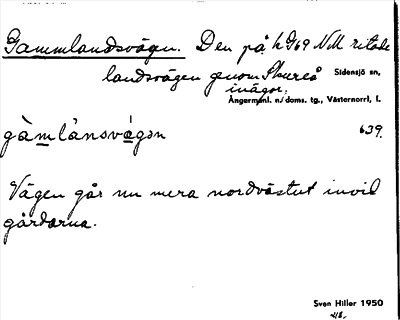 Gammlandsvägen. Den på k 969 NM ritade
landsvägen genom Skureå Sidensjö sn,
inägor.
Ångermanl. n. doms. tg., Västernorrl. l.
gàmlánsvá̀gən 639.
Vägen går nu mera nordvästut invid
gårdarna.
Sven Hiller 1950